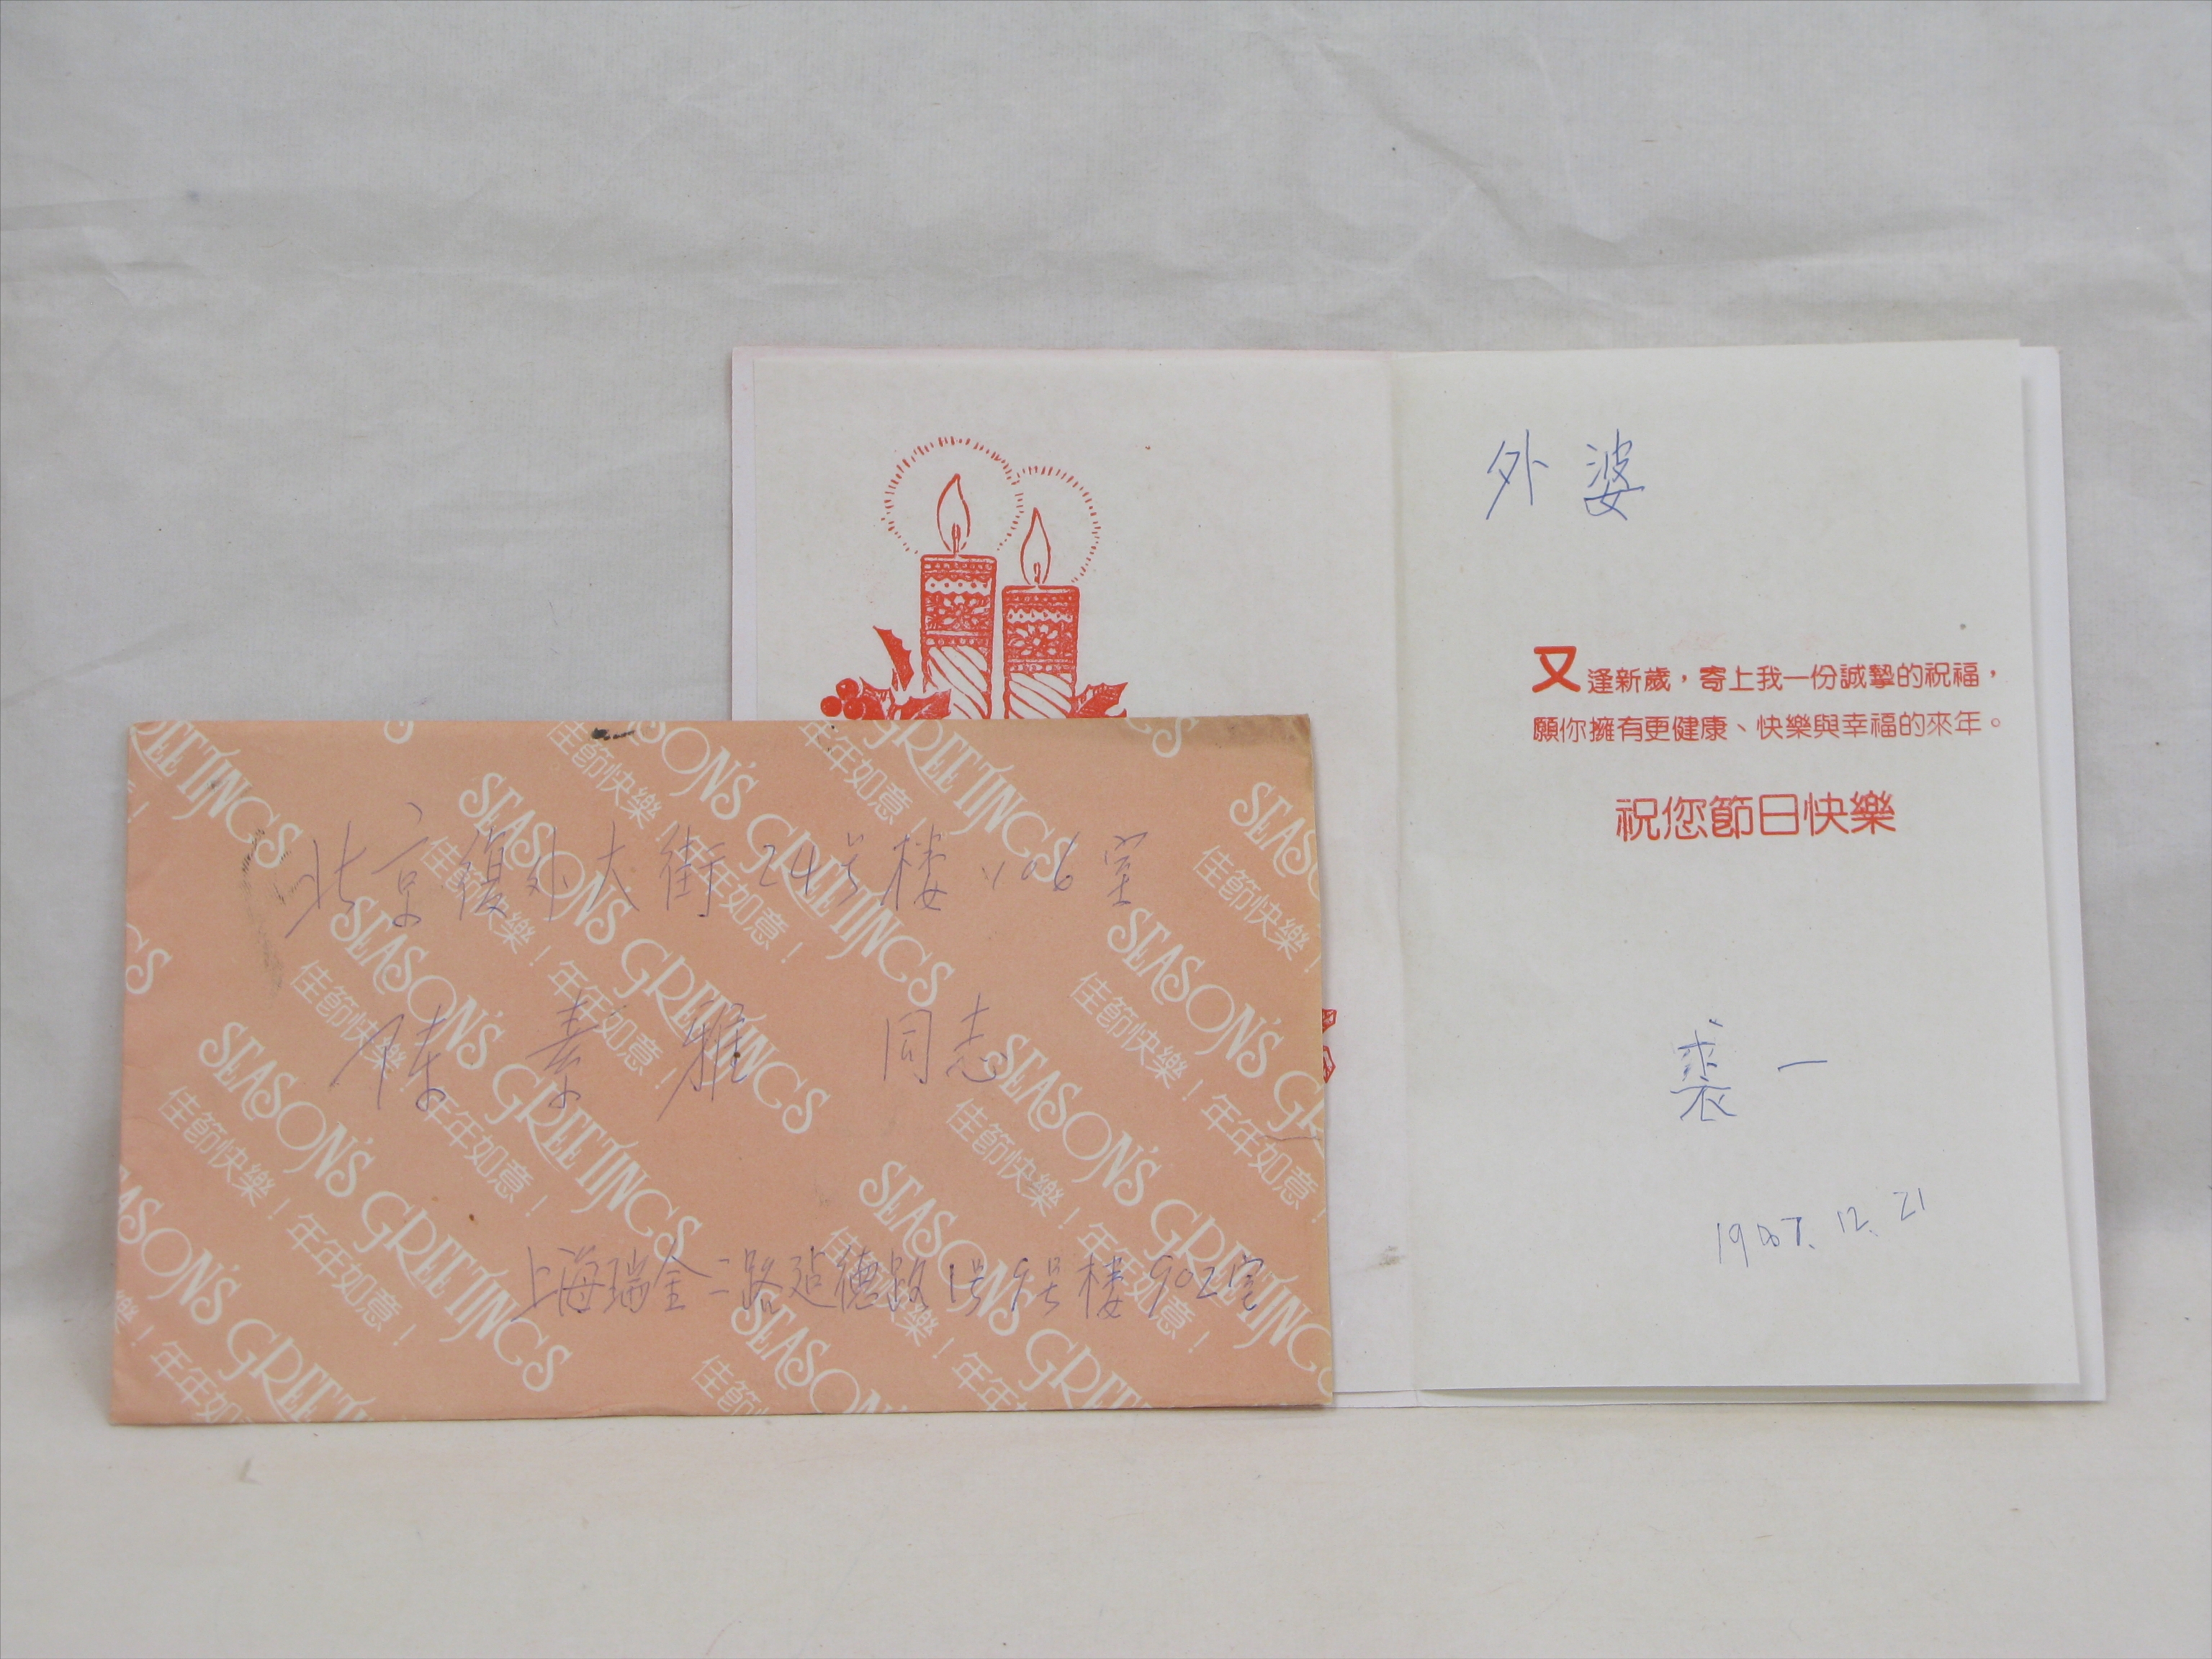 外婆
又逢新歲，寄上我一份誠摯的祝福，
願你擁有更健康、快樂與幸福的來年。
祝您節日快樂
裘一
1987.12.21
北京復外大街24号楼106室
陈素雅 同志
上海瑞金二路建德路1号9号楼902室
SEASON'S GREETINGS
佳節快樂！年年如意！